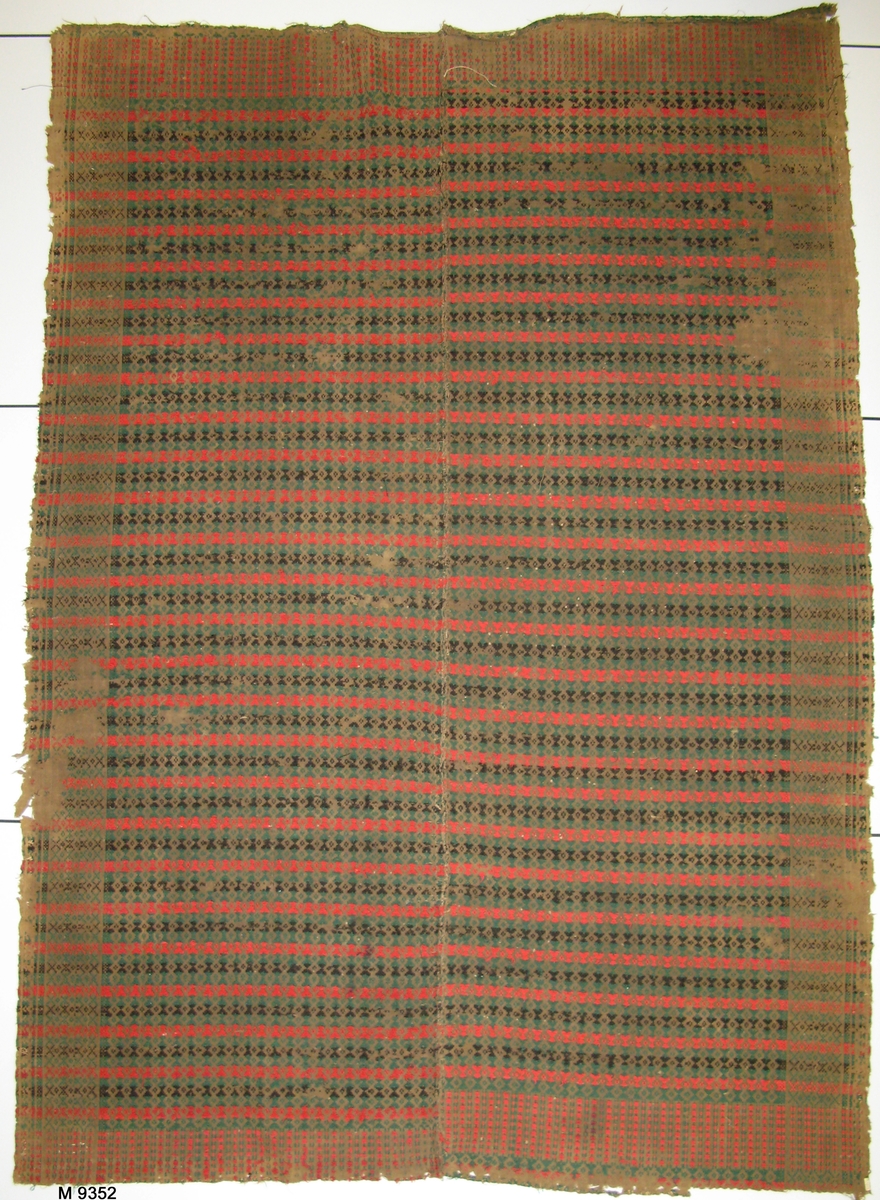 M 9352